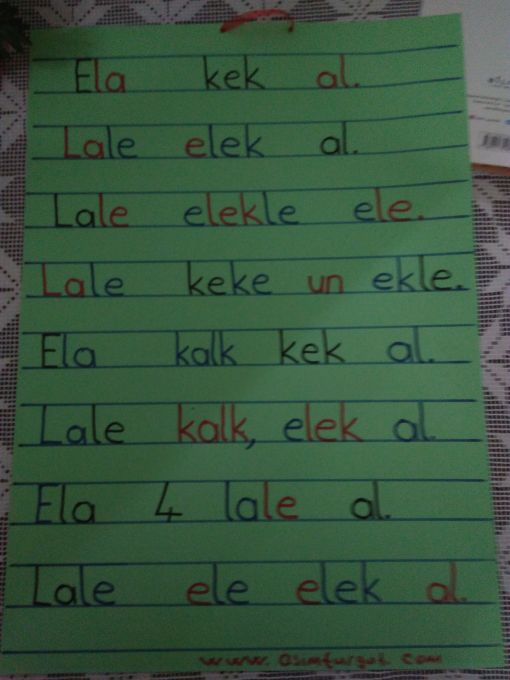 Ela kek al.
Lale elek al.
Lale elekle ele.
Lale keke un ekle.
Ela kalk kek al.
Lale kalk, elek al.
Ela 4 lale al.
Lale ele elek al.